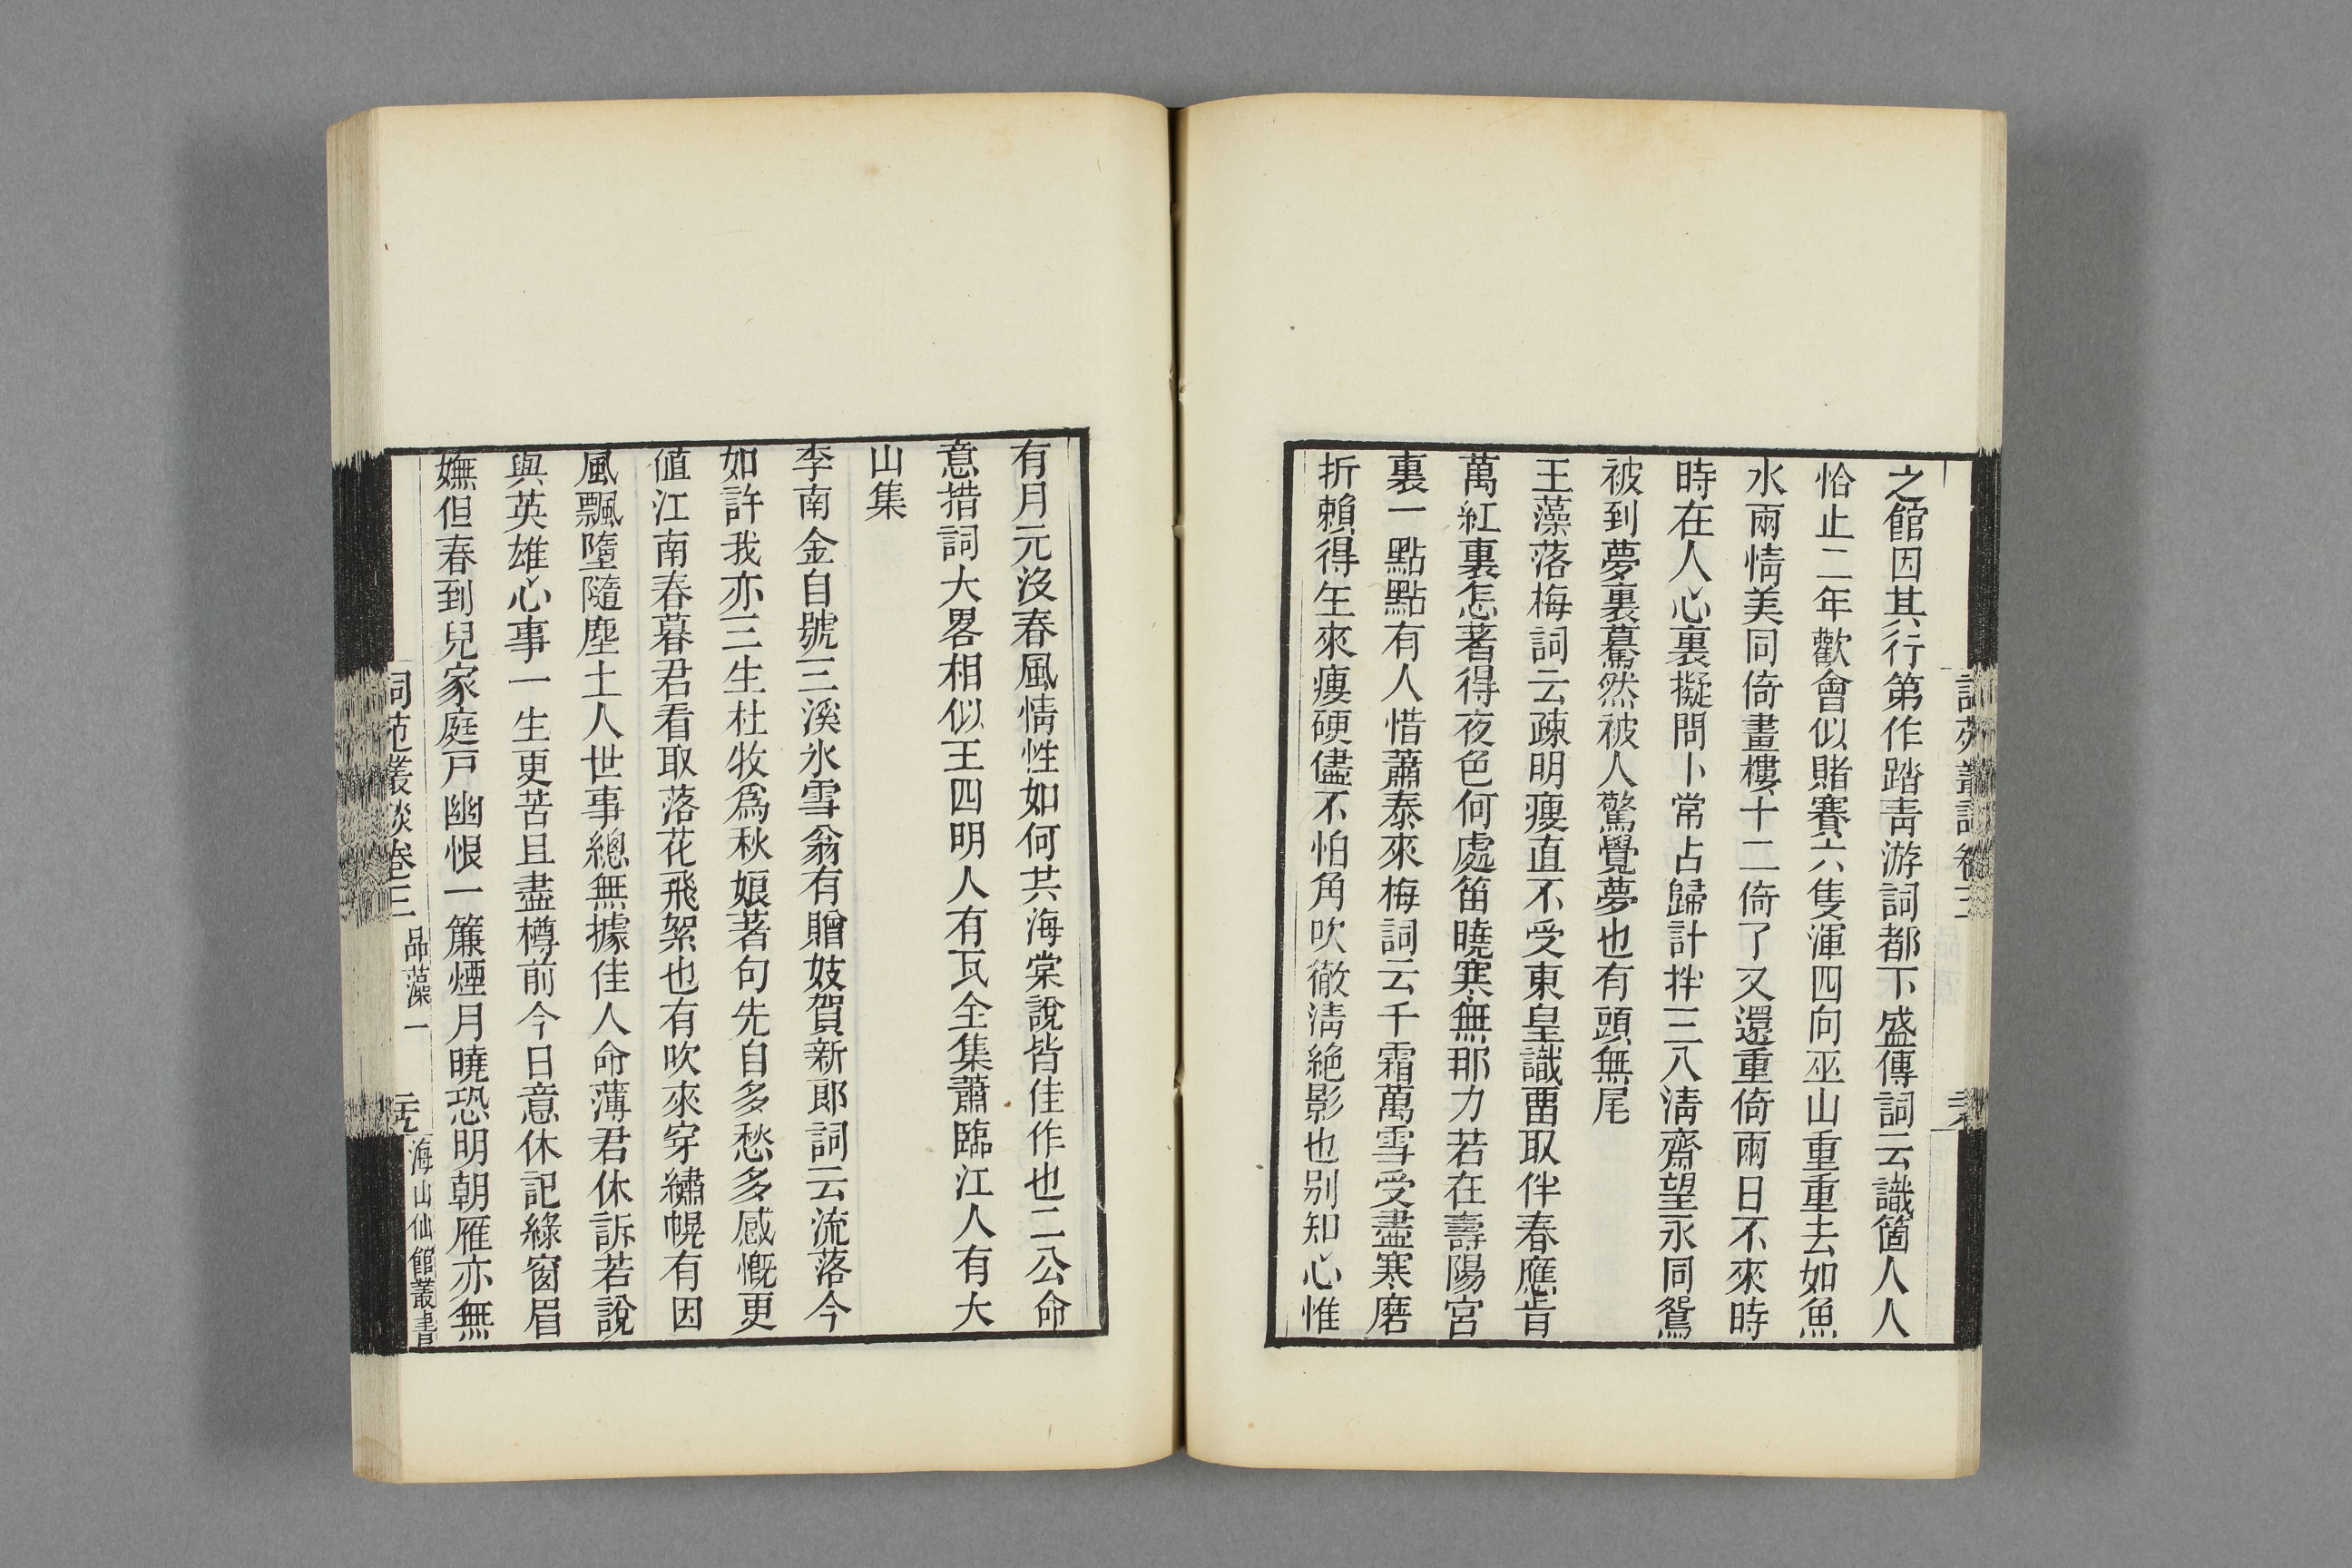 之館因其行第作踏靑游詞都下盛傳詞云識箇人人
恰止二年歡會似賭賽六隻渾四向巫山重重去如魚
水兩情美同倚畫樓十二倚了又還重倚兩日不來時
時在人心裏擬問卜常占歸計拌三八淸齋望永同鴛
被到夢裏驀然被人驚覺夢也有頭無尾
王藻落梅詞云疎明瘦直不受東皇識畱取伴春應肯
萬紅裏怎著得夜色何處笛曉寒無那力若在壽陽宮
裏一點點有人惜蕭泰來梅詞云千霜萬雪受盡寒磨
折賴得生來瘦硬儘不怕角吹徹淸絕影也別知心惟
有月元沒春風情性如何共海棠說皆佳作也二公命
意措詞大畧相似王四明人有瓦全集蕭臨江人有大
山集
李南金自號三溪氷雪翁有贈妓賀新郎詞云流落今
如許我亦三生杜牧爲秋娘著句先自多愁多感慨更
値江南春暮君看取落花飛絮也有吹來穿繡幌有因
風飄墮隨塵土人世事總無據佳人命薄君休訴若說
與英雄心事一生更苦且盡樽前今日意休記綠窗眉
嫵但春到兒家庭戸幽恨一簾煙月曉恐明朝雁亦無
詞苑叢談卷三 品藻一 海山仙館叢書